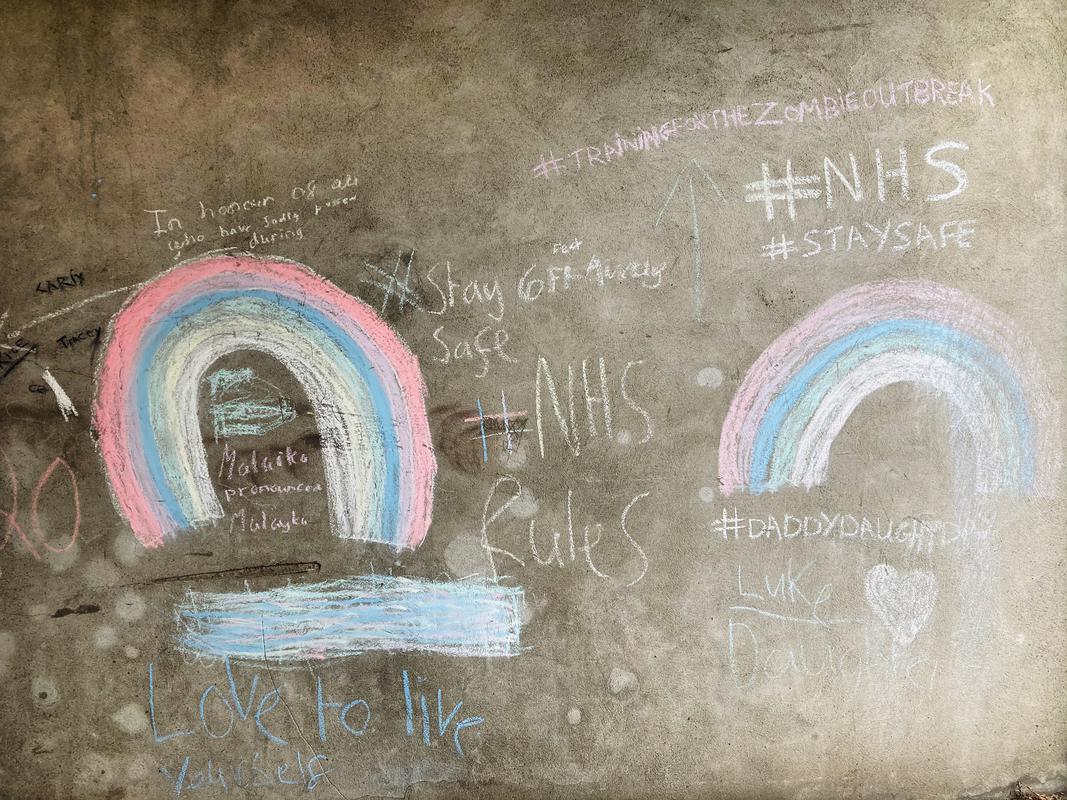 In honour of all
who have sadly passed
during
SARAY
Tracey
Malaika
pronounced
Malayka
Love to live
Yourself
Feet
Stay 6FT Away
Safe
#NHS
Rules
#TRAINING FOR THE ZOMBIE OUTBREAK
#NHS
#STAYSAFE
#DADDYDAUGHTDAY
Luke
Daughter